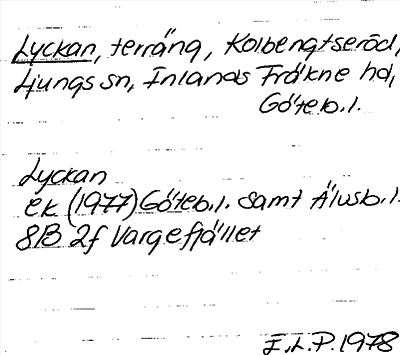 Lyckan, terräng, Kolbengtseröd,
Ljungs sn, Inlands Fräkne hd,
Göteb.l.
Lyckan
ek (1977) Göteb.l. samt Älvsb.l.
8B 2f Vargefjället
E.L.P. 1978